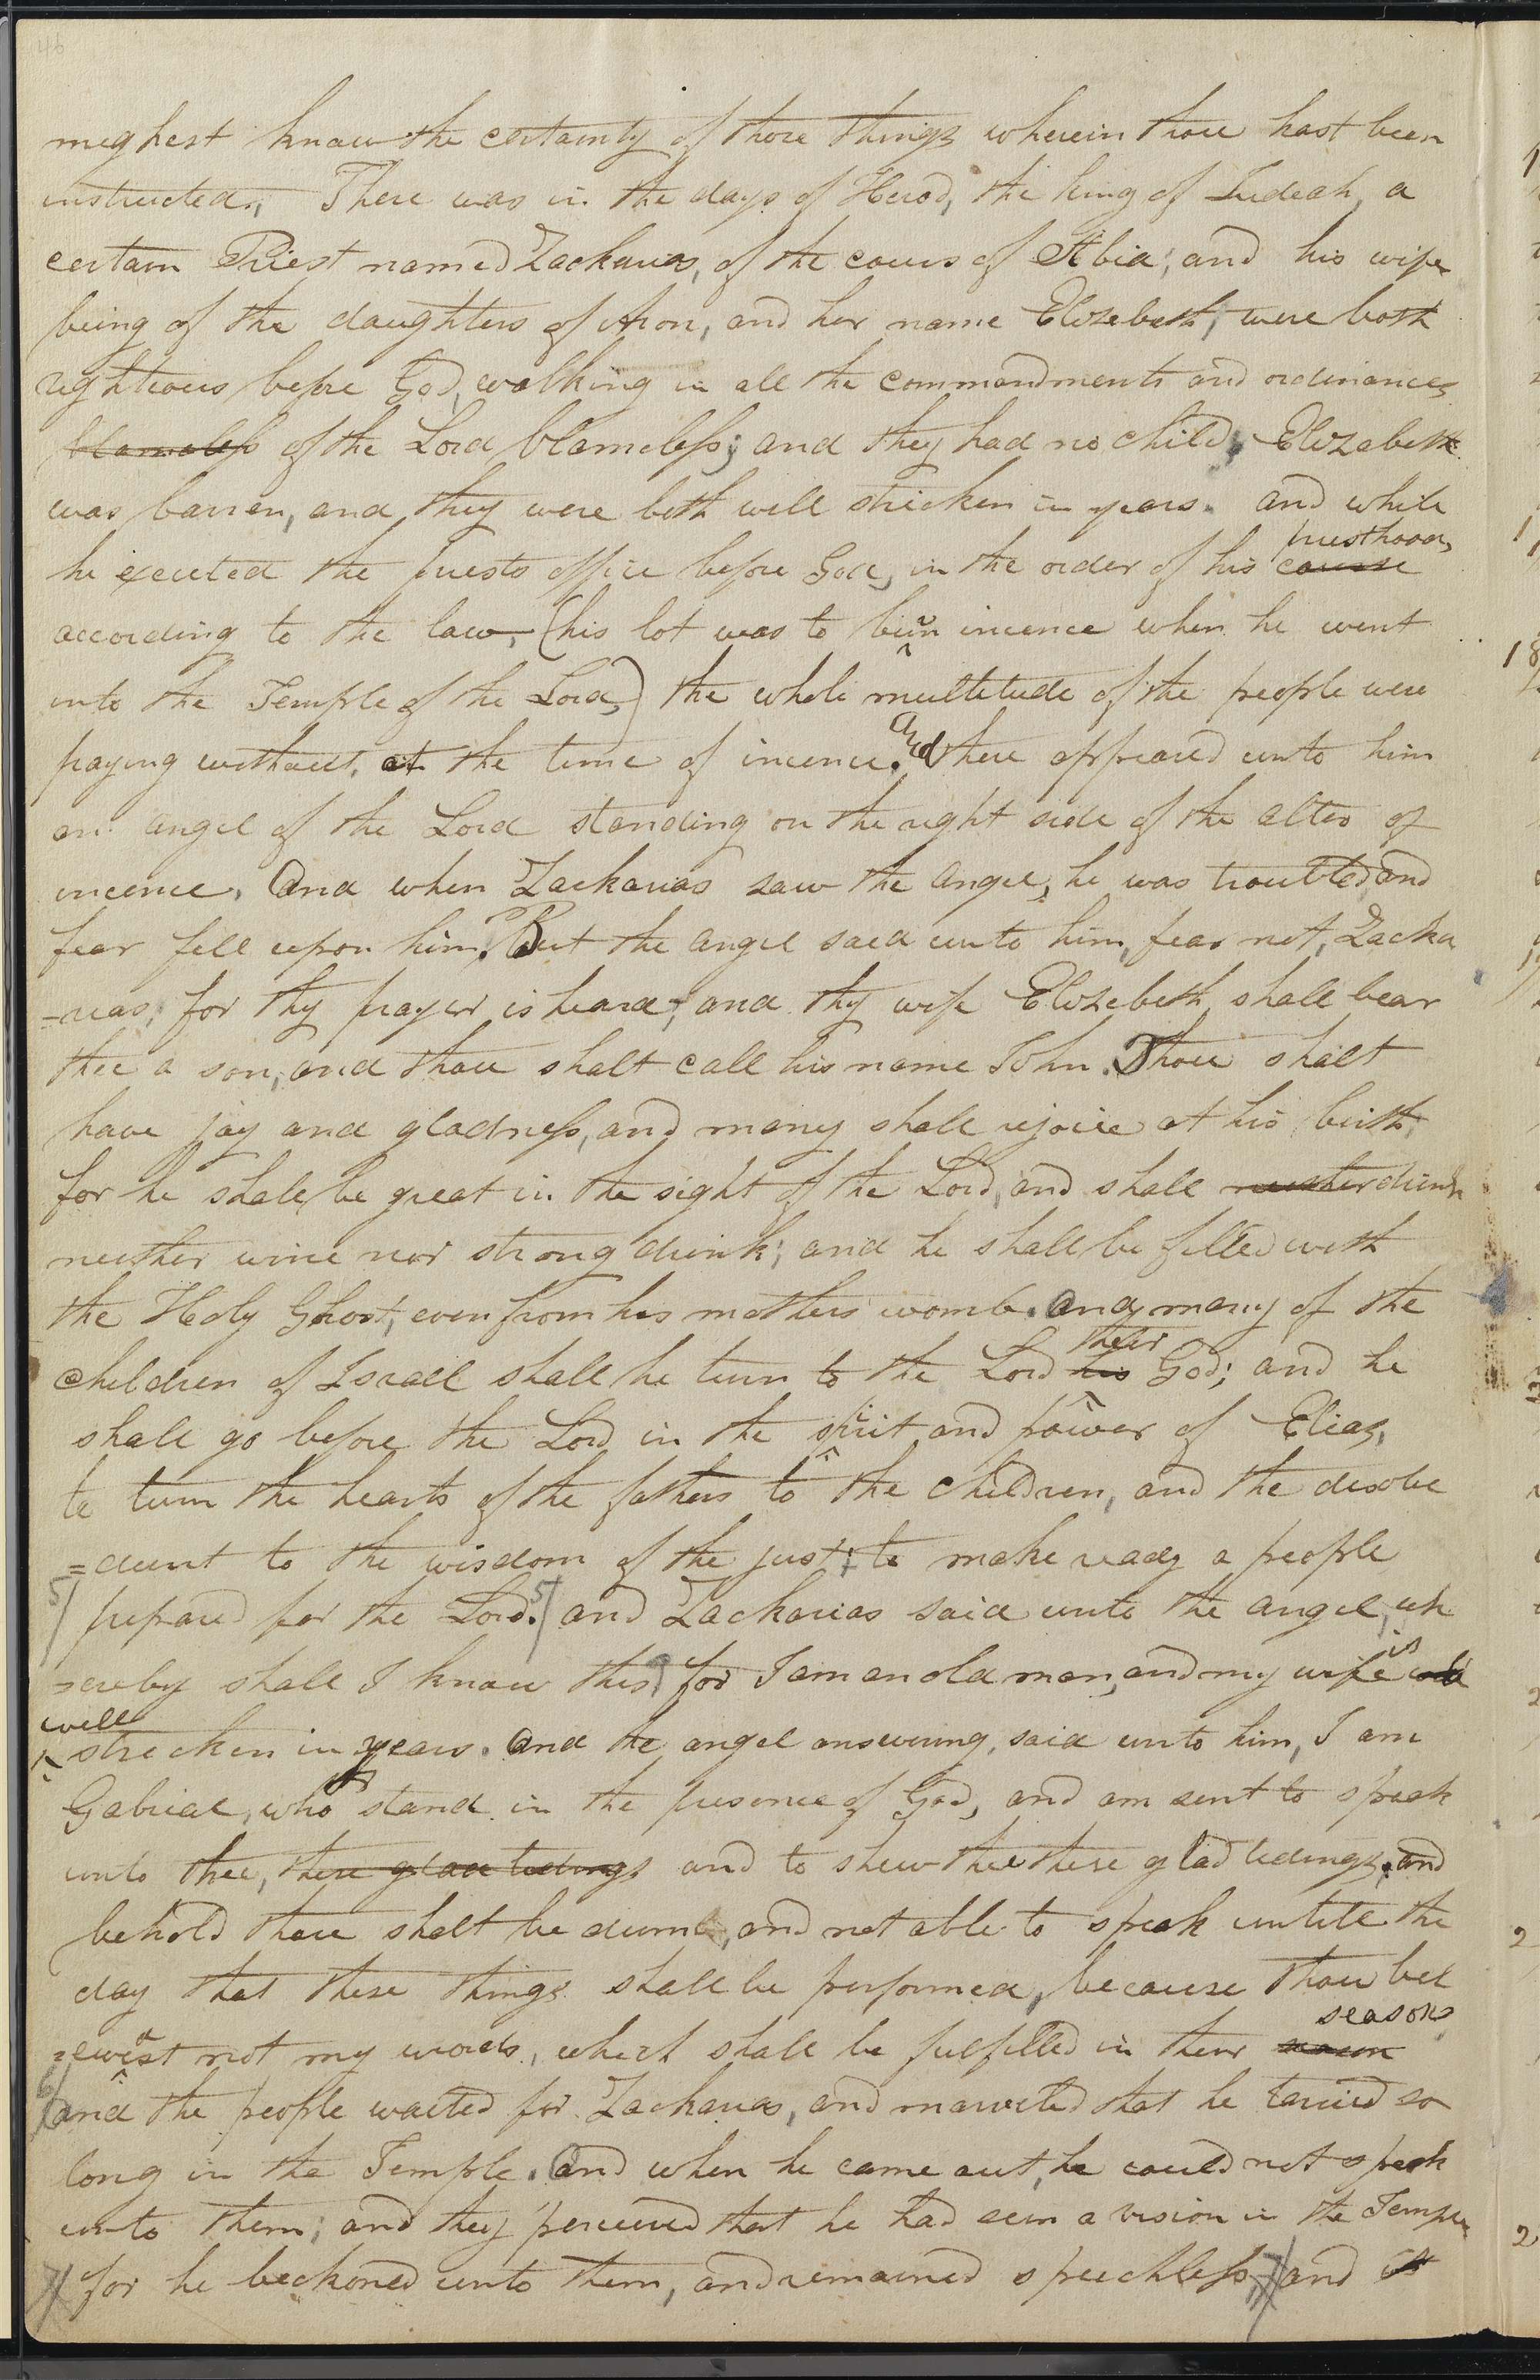 46
meghest know the certainty of those things wherein thou hast been
instructed., There was in the days of Herod, the king of Judeah, a
certain Priest named Zacharias, of the cours of Abia; and his wife
being of the daughters of Aron, and her name Elizebeth, were both
rightious before God, walking in all the commandments and ordinances
blameless of the Lord blameless; and they had no child; Elizabeth
was barren, and they were both well stricken in years. and while
priesthood,
he excuted the priests office before God, in the order of his course
according to the law, (his lot was to burn incence when he went
into the Temple of the Lord,) the whole multitude of the people were
praying without, at the time of incence. And there appeared unto him
an angel of the Lord standing on the right side of the alter of
incence. And when Zacharias saw the angel, he was troubled, and
fear fell upon him. But the angel said unto him, fear not, Zacha
=rias, for thy prayer is heard, and thy wife Elizebeth shall bear
thee a son, and thou shalt call his name John. Thou shalt
have joy and gladness, and many shall rejoice at his birth,
for he shall be great in the sight of the Lord, and shall neither drink
neither wine nor strong drink; and he shall be filled with
the Holy Ghost, even from his mothers womb. And many of the
their
children of Israel shall he turn to the Lord his God; and he
shall go before the Lord in the spirit and power of Elias,
to turn the hearts of the fathers to the children, and the disobe
=dient to the wisdom of the just, to make ready a people
5/ prepared for the Lord. 5/ and Zacharias said unto the angel, wh
is
=ereby shall I know this, for I am an old man, and my wife
well
stricken in years. And the angel answering, said unto him, I am
Gabriel, who stand in the presence of God, and am sent to speak
unto thee, these glad tidings and to shew thee these glad tidings. and
behold thou shalt be dumb, and not able to speak until the
day that these things shall be performed, because thou bel
season
=ievest not my words, which shall be fulfilled in their
6/ and the people waited for Zacharias, and marveled that he tarried so
long in the Temple. And when he came out, he could not speak
unto them; and they perceived that he had seen a vision in the Temple
7/ for he beckoned unto them, and remained speechless, 7/ and it
1
18
2
2
2